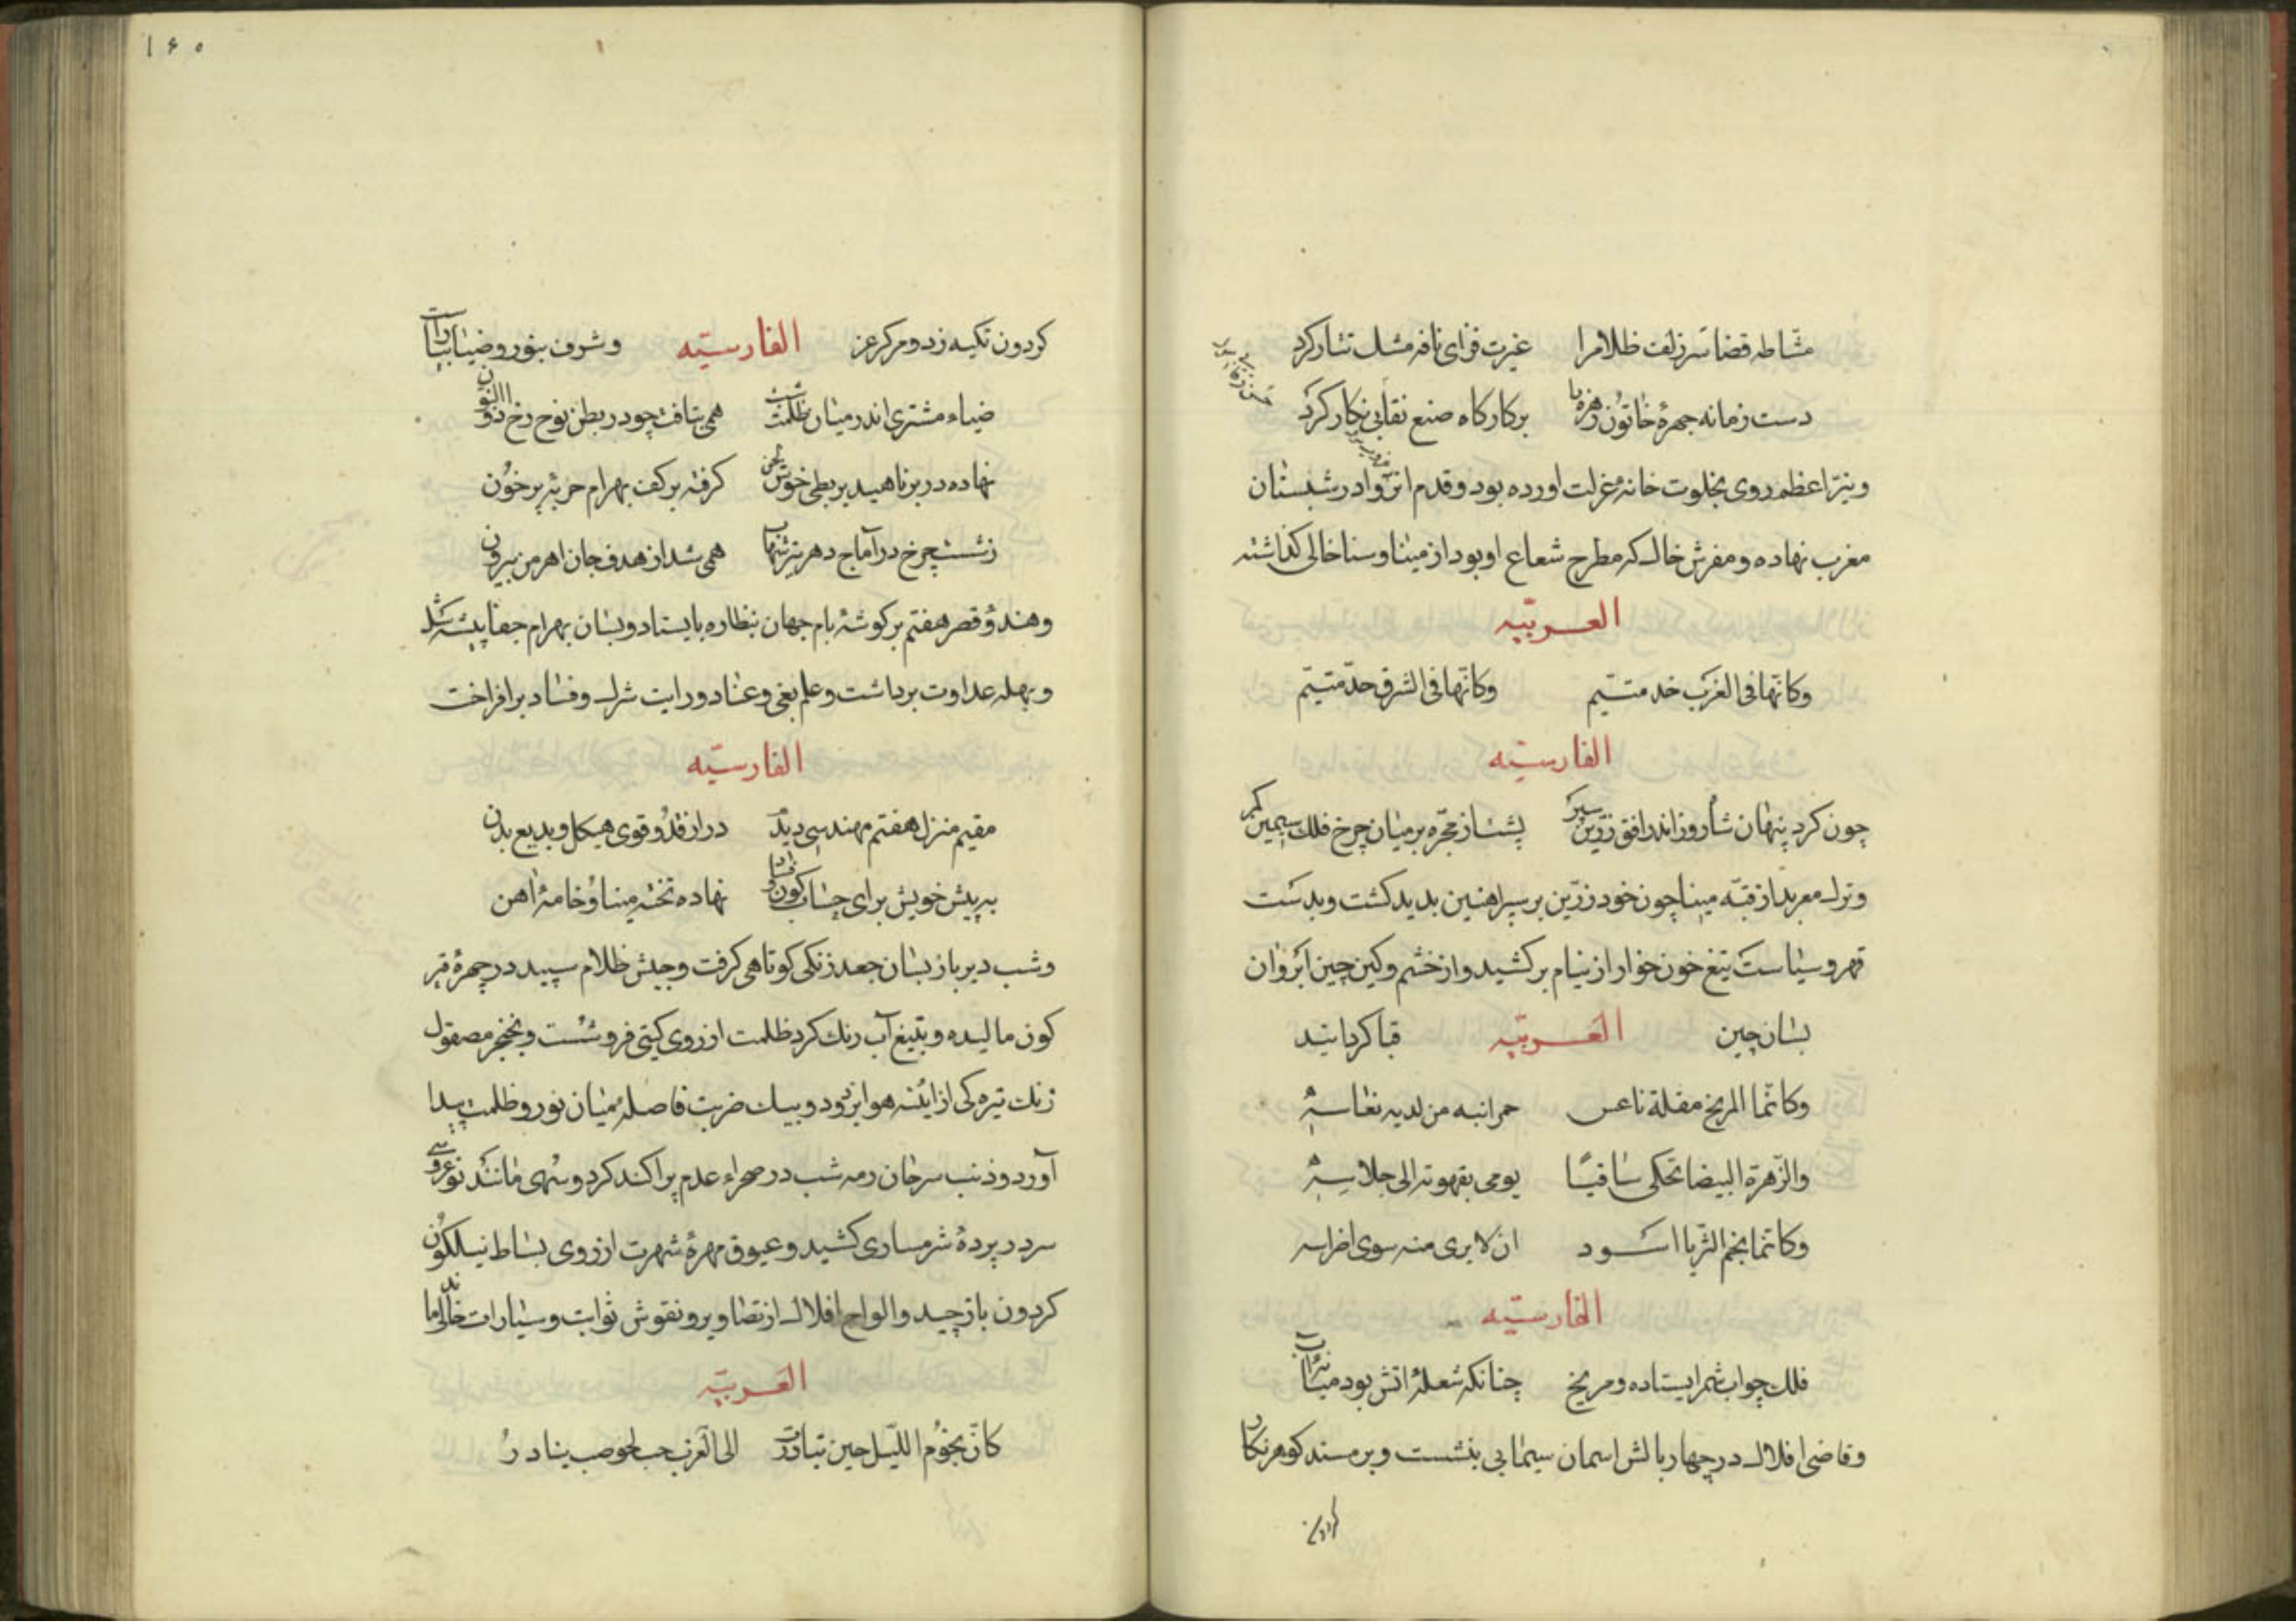 مشاطه قضا سر زلف ظلام را غیرت فزای نافه مشک تتار کرد
دست زمانه چهرهٔ خاتون زهره را بر کارکاه صنع نقابی نکار کرد
و نیّر اعظم روی بخلوت خانه عزلت اورده بود و قدم انزوا در شبستان
مغرب نهاده و مفرش خاک که مطرح شعاع او بود از مینا و سنا خالی کذاشته
العربیّه
وکانّها فی الغرب خد متیّم وکانّها فی الشرق حدّ متیّم
الفارسیّه
چون کرد پنهان شاه روز اندر افق زرّین سپر بست از مجرّه بر میان چرخ فلک سیمین کمر
و ترک معربد از قبّه مینا چون خود زرّین بر سپر اهنین بدید کشت و بدست
قهر و سیاست تیغ خون خوار از نیام بر کشید و از خشم و کین چین ابروان
بسان چین العربیّه قبا کردانید
وکانّما المریخ مقلة ناعس حمرا نبه من لدیه نعاسه
والزّهرة البیضا تحکی ساقیًا یومی بقهوته الی جلاسه
وکانّما نجم الثریا اسود ان لا یری منه سوی اضراسه
الفارسیّه
فلک چو اب شمر ایستاده و مریخ چنانکه شعلهٔ اتش بود میانهٔ اب
و قاضی افلاک در چهار بالش اسمان سیمابی بنشست و بر مسند کوهر نکار
کردون
۱۶۰
کردون تکیه زد و مرکز عز الفارسیّه و شرف بنور و ضیا بیاراست
ضیاء مشتری اندر میان ظلمت شب همی بتافت چو در بطن نوح رخ ذو النون
نهاده در بر ناهید بربطی خوش لحن کرفته بر کف بهرام حربهٔ پر خون
ز شست چرخ در آماج دهر تیر شهاب همی شد از هدف جان اهرمن بیرون
و هندؤ قصر هفتم بر کوشهٔ بام جهان بنظاره بایستاد و بسان بهرام جفا پیشه شد
و بهله عداوت برداشت و علم بغی و عناد و رایت شرک و فساد بر افراخت
الفارسیّه
مقیم منزل هفتم مهندسی دیدم دراز قدّ و قوی هیکل و بدیع بدن
به پیش خویش برای حساب کون و فساد نهاده تختهٔ مینا و خامهٔ اهن
و شب دیر باز بسان جعد زنکی کوتاهی کرفت و جیش ظلام سپید در چهرهٔ قیر
کون مالیده و بتیغ آب رنک کرد ظلمت از روی کیتی فرو شست و بخنجر مصقول
زنک تیره کی از ائینه هوا بزدود و بیک ضربت فاصله میان نور و ظلمت پیدا
آورد و ذنب سرحان رمه شب در صحراء عدم پراکنده کرد و سهی مانند نو عروسی
سر در پردهٔ شرمساری کشید و عیوق مهرهٔ شهرت از روی بساط نیلکون
کردون باز چید و الواح افلاک از تصاویر و نقوش ثوابت و سیارات خالی ماند
العربیّه
کانّ نجوم اللیل حین تبادرت الی الغرب